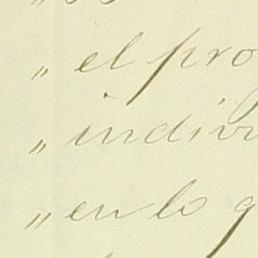 „ el pro
„ indivi
„ en lo q